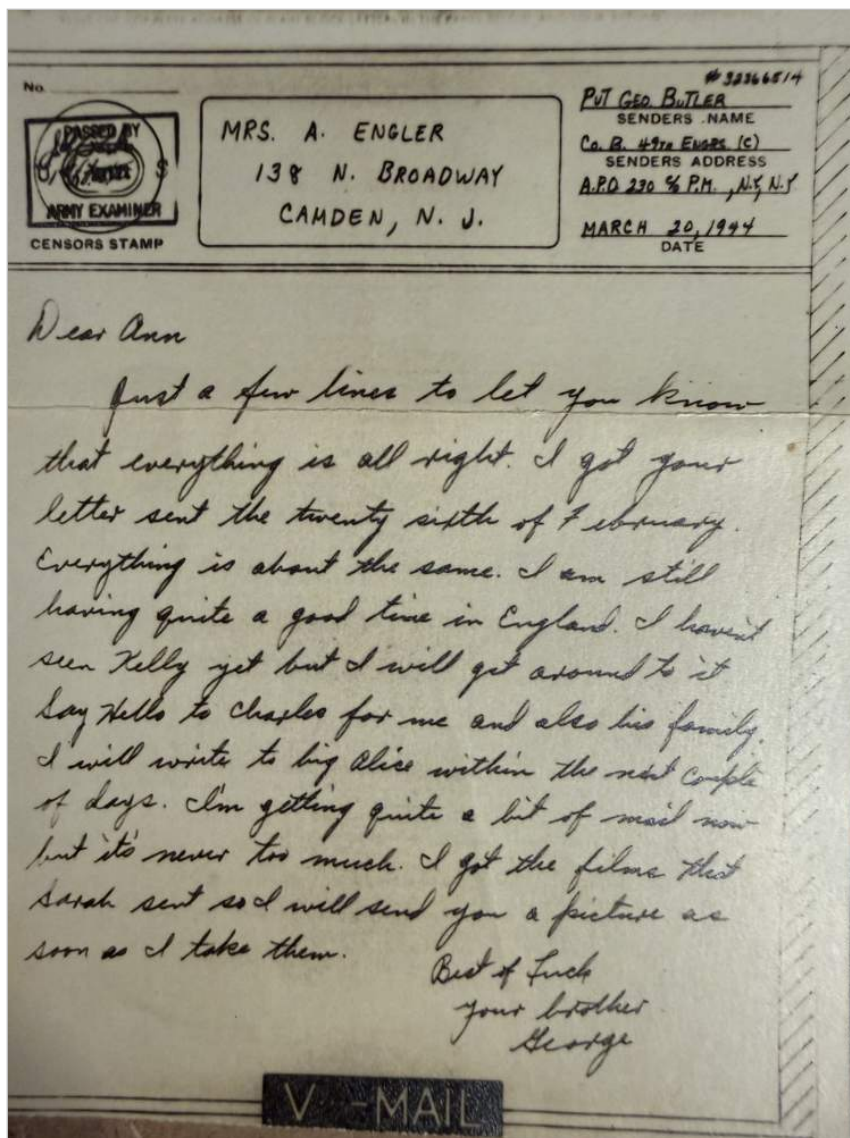 No.
PASSED BY
S
ARMY EXAMINER
CENSORS STAMP
MRS. A. ENGLER
138 N. BROADWAY
CAMDEN, N. J.
# 32366514
PVT GEO. BUTLER
SENDERS NAME
Co. B. 49TH ENGRS (C)
SENDERS ADDRESS
A.P.O 230 % P.M. , N.Y, N.Y
MARCH 20, 1944
DATE
Dear Ann
Just a few lines to let you know
that everything is all right. I got your
letter sent the twenty sixth of February.
Everything is about the same. I am still
having quite a good time in England. I haven't
seen Kelly yet but I will get around to it
Say Hello to Charles for me and also his family.
I will write to big Alice within the next couple
of days. I'm getting quite a bit of mail now
but it's never too much. I got the films that
Sarah sent so I will send you a picture as
soon as I take them.
Best of Luck
your brother
George
V - MAIL